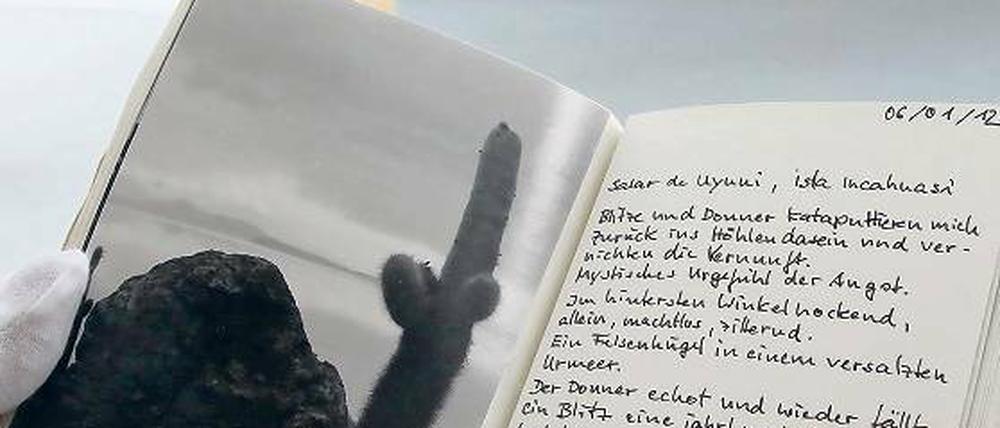 06/01/12
Salar de Uyuni, isla Incahuasi
Blitze und Donner kataputtieren mich
zurück ins Höhlendasein und ver-
nichten die Vernunft.
Mystisches Urgefühl der Angst.
Im hintersten Winkel hockend,
allein, machtlos, zitternd.
Ein Felsenhügel in einem versalzten
Urmeer.
Der Donner echot und wieder fällt
ein Blitz eine